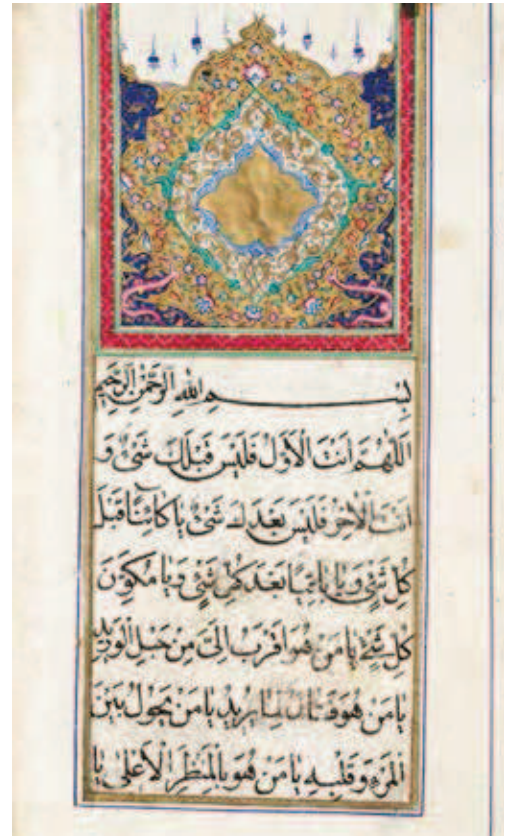 بِسْمِ اللهِ الرَّحْمٰنِ الرَّحِيمِ
اَللّٰهُمَّ اَنْتَ الْاَوَّلُ فَلَيْسَ قَبْلَكَ شَيْءٌ وَ
اَنْتَ الْاٰخِرُ فَلَيْسَ بَعْدَكَ شَيْءٌ يَا كَائِنًا قَبْلَ
كُلِّ شَيْءٍ وَ يَا بَاقِيًا بَعْدَ كُلِّ شَيْءٍ وَ يَا مُكَوِّنَ
كُلِّ شَيْءٍ يَا مَنْ هُوَ اَقْرَبُ اِلَيَّ مِنْ حَبْلِ الْوَرِيدِ
يَا مَنْ هُوَ فَعَّالٌ لِمَا يُرِيدُ يَا مَنْ يَحُولُ بَيْنَ
الْمَرْءِ وَ قَلْبِهِ يَا مَنْ هُوَ بِالْمَنْظَرِ الْاَعْلٰى يَا